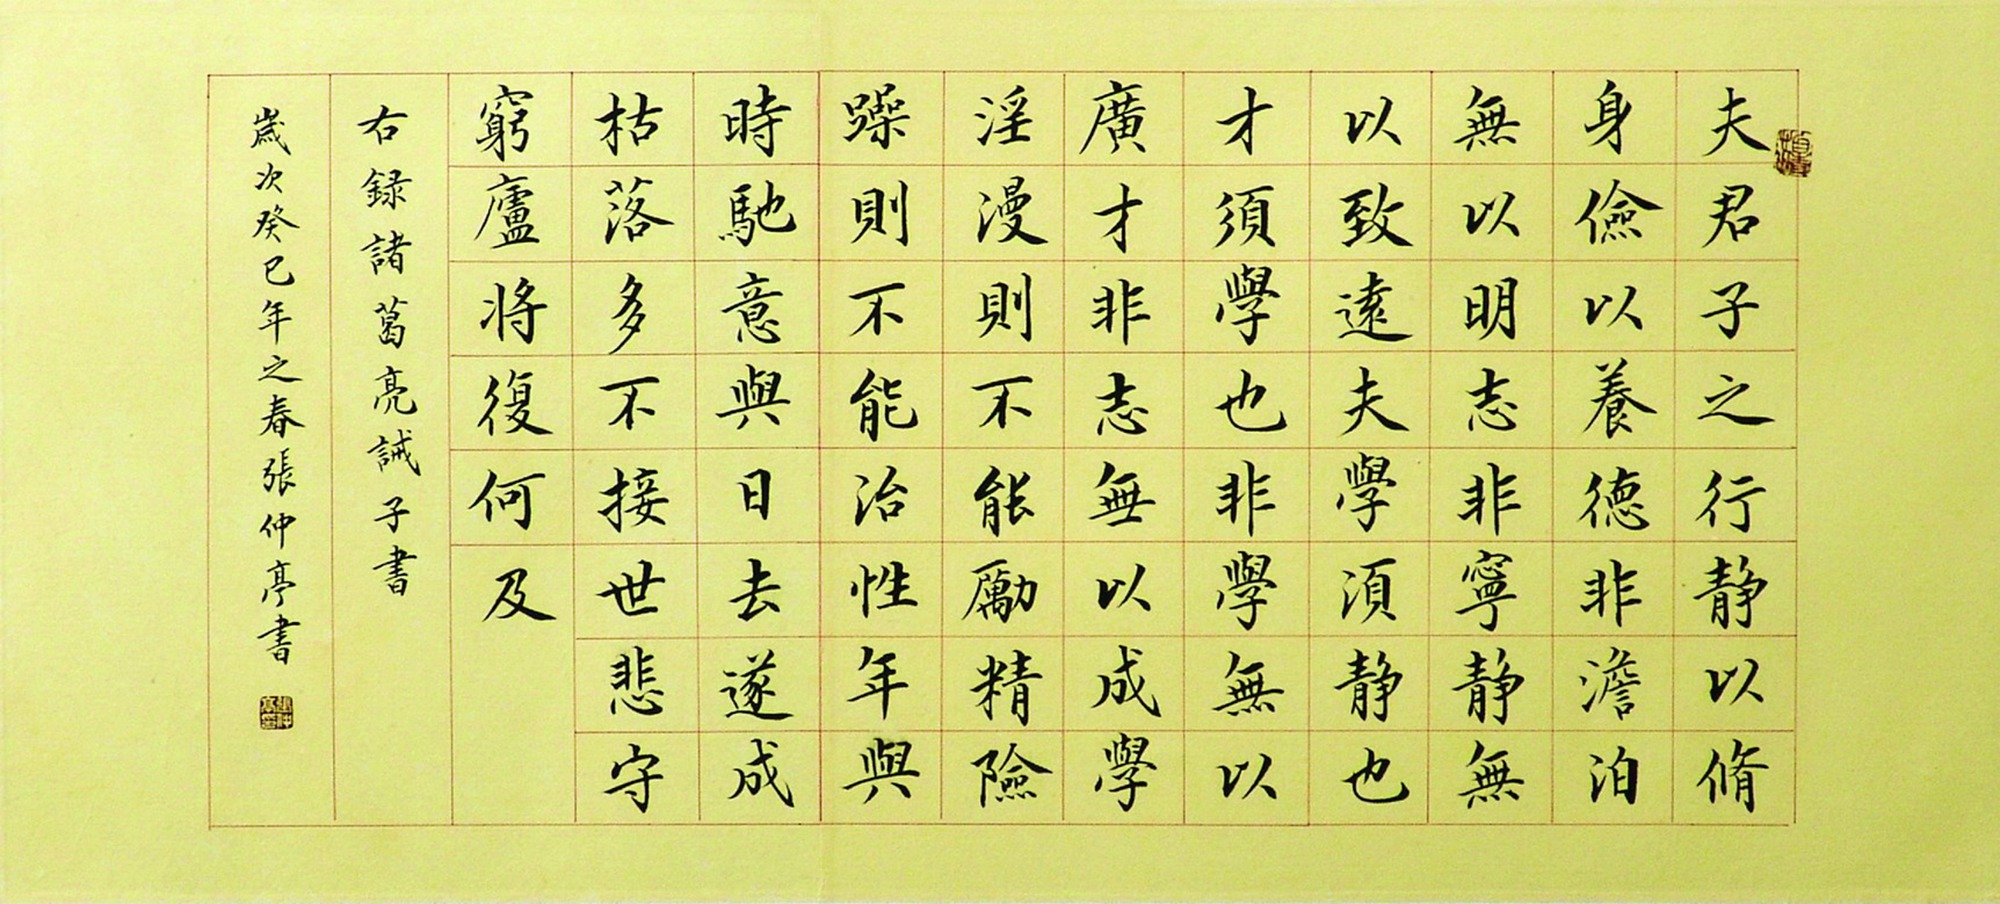 夫君子之行静以脩
身儉以養德非澹泊
無以明志非寧静無
以致遠夫學須静也
才須學也非學無以
廣才非志無以成學
淫漫則不能勵精險
躁則不能治性年與
時馳意與日去遂成
枯落多不接世悲守
窮廬将復何及
右録諸葛亮誡子書
歲次癸巳年之春張仲亭書